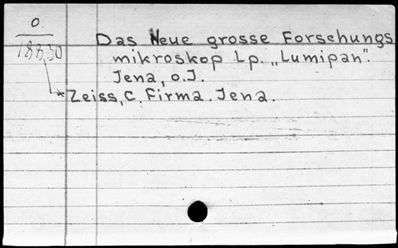 O.
18830
Das Neue grosse Forschungs
mikroskop Lp. „Lumipan".
Jena, o.J.
* Zeiss, C. Firma. Jena.